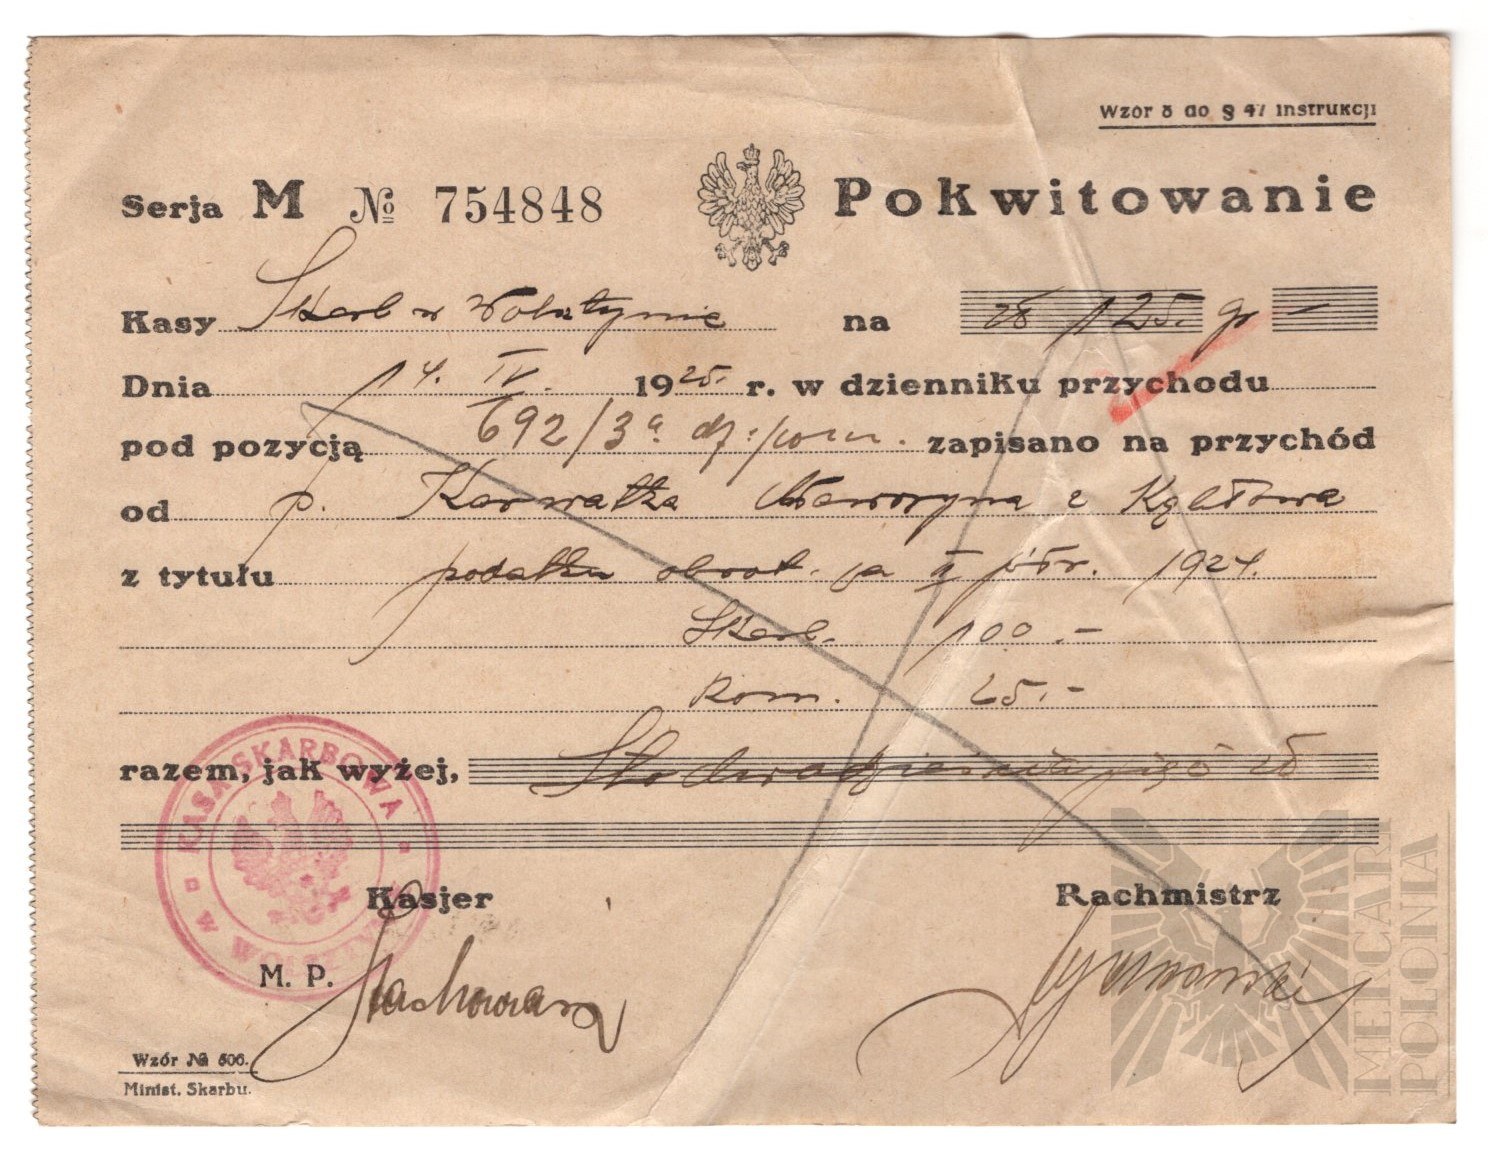 Wzór 5 do § 47 instrukcji
Serja M № 754848 Pokwitowanie
Kasy Skarb w Wolsztynie na zł 125.- gr -
Dnia 14. IV. 1925. r. w dzienniku przychodu
pod pozycją 692/3a dz. pom. zapisano na przychód
od p. Karwatka Wawrzyna z Kębłowa
z tytułu podatku obrot. za II półr. 1924.
Skarb. 100.-
Kom. 25.-
razem, jak wyżej, Stodwadzieściapięć zł
KASA SKARBOWA W WOLSZTYNIE
Kasjer Rachmistrz
M. P.
Wzór № 506.
Minist. Skarbu.
MERCARI
POLONIA